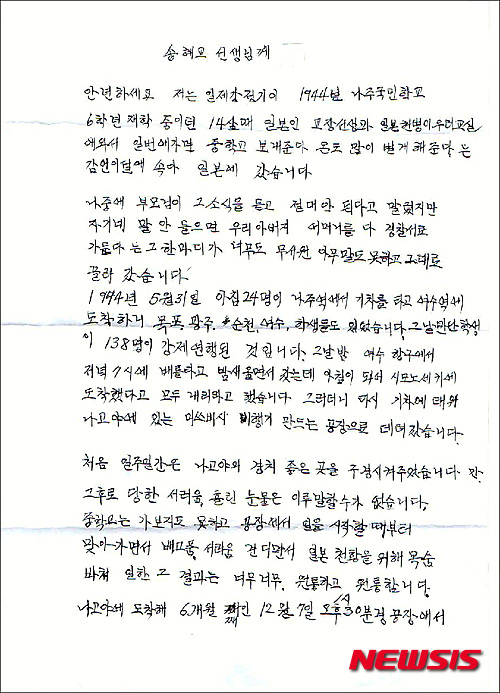 송혜모 선생님께
안녕하세요 저는 일제강점기 1944년 나주국민학교
6학년 재학 중이던 14살때 일본인 교장선생과 일본헌병이 우리교실
에와서 일번에가면 중학교 보내준다 돈도 많이 벌게 해준다 는
감언이설에 속아 일본에 갔습니다
나중에 부모님이 그소식을 듣고 절대안 된다고 말렸지만
자기네 말 안 들으면 우리아버지 어머니를 다 경찰서로
가둔다 는 그 한마디가 너무도 무서워 아무말도 못하고 그대로
끌려 갔습니다
1944년 5월31일 아침 24명이 나주역에서 기차를 타고 여수역에
도착하니 목포 광주 순천, 여수, 학생들도 있었습니다. 그날만난 학생
이 138명이 강제연행된 것입니다. 그날밤 여수 항구에서
저녁 7시에 배를타고 밤새울면서 갔는데 아침이 되서 시모노세키에
도착했다고 모두 내리라고 했습니다 그러더니 다시 기차에 태워
나고야에 있는 미쓰비시 비행기 만드는 공장으로 데려갔습니다.
처음 일주일간은 나고야와 경치 좋은 곳을 구경시켜주었습니다
그후로 당한 서러움, 흘린 눈물은 이루말할수가 없습니다.
중학교는 가보지도 못하고 공장에서 일을 시작할 때부터
맞아 가면서 배고픔, 서러움 견디면서 일본 천황을 위해 목숨
바쳐 일한 그 결과는 너무너무 원통하고 원통합니다.
나고야에 도착해 6개월 째인 12월 7일 오후 30분경 공장에서
NEWSIS